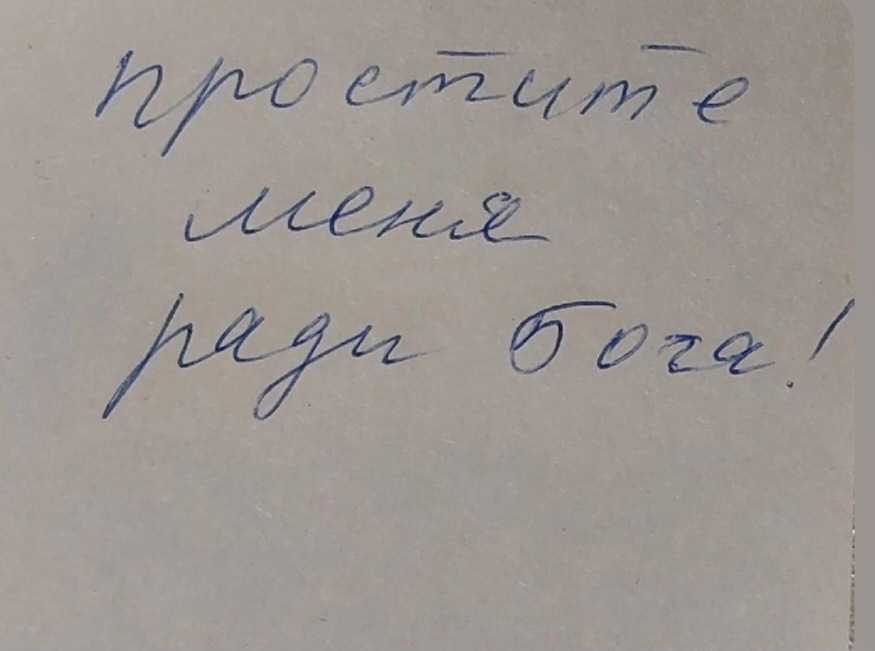 простите
меня
ради бога!